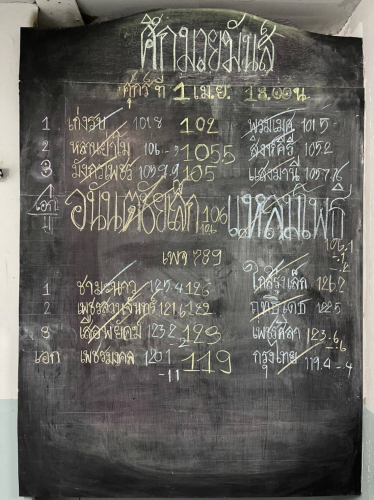 ศึกมวยมันส์
ศุกร์ ที่ 1 เม.ย. 18.00 น.
1 เก่งรบ 101.8 102 พรมเมศ 101.5
2 หลานย่าโม 106 105.5 สิงห์คีรี 105.2
3 มังกรเพชร 105.9 105 แสงมานี
เอก อนันตชัยเล็ก 106 แหลมโพธิ์ 106.1
เพจ 789
1 ชามะนาว 125.4 126 ใกล้รุ่งเล็ก 126.2
2 เพชรสวนจันทร์ 121.6 122 ฤทธิเดช 122.5
3 เสือพยัคฆ์ 123.2 123 เพชรศิลา 123.6
เอก เพชรมงคล 120.1 119 กรุงไทย 119.4 -.4
-1.1